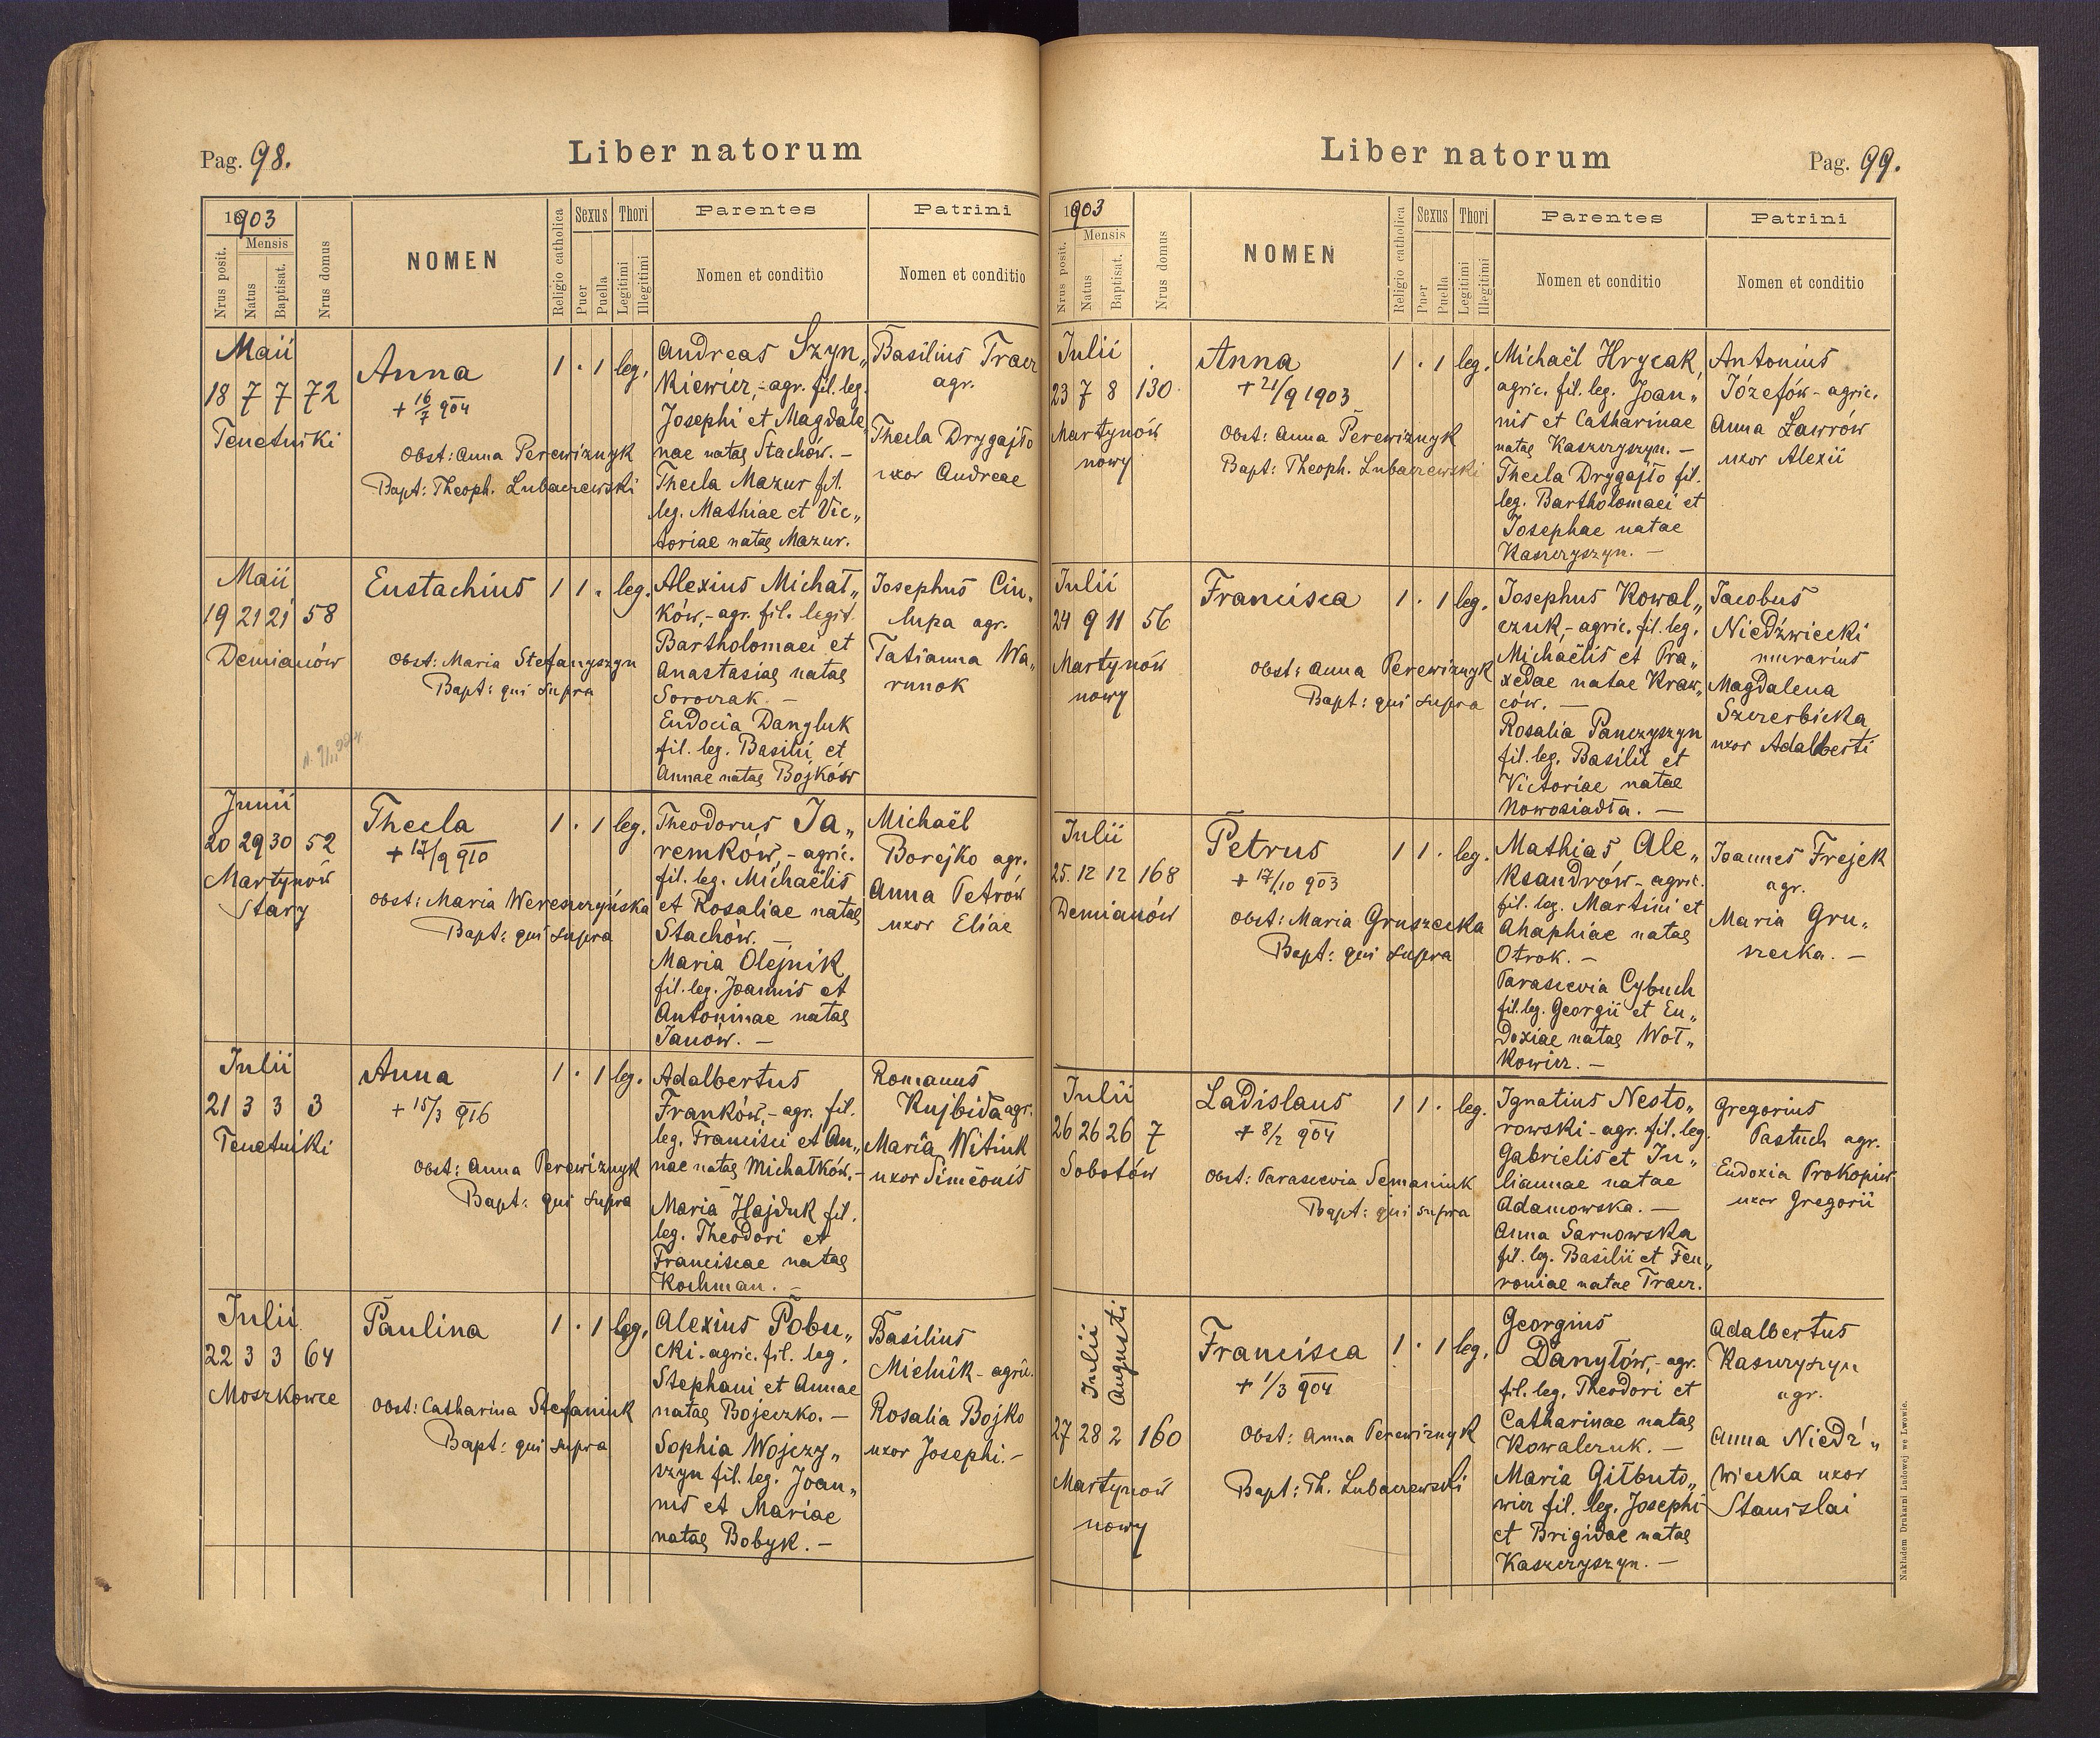 Pag. 98.
Liber natorum
1903
Mensis
Nrus posit.
Natus
Baptisat.
Nrus domus
NOMEN
Religio catholica
Sexus
Puer
Puella
Thori
Legitimi
Illegitimi
Parentes
Nomen et conditio
Patrini
Nomen et conditio
Maii
18 7 7 72
Tenetniki
Anna
+ 16/7 904
Obst: Anna Perewiznyk
Bapt: Theoph. Lubaczewski
1 · 1 leg.
Andreas Szyn„
kiewicz,- agr. fil. leg.
Josephi et Magdale„
nae natae Stachów. —
Thecla Mazur fil.
leg. Mathiae et Vic„
toriae natae Mazur.
Basilius Tracz
agr.
Thecla Drygajło
uxor Andreae
Maii
19 21 21 58
Demianów
Eustachius
Obst: Maria Stefanyszyn
Bapt: qui supra
1 1 · leg.
Alexius Michał„
ków,- agr. fil. legit.
Bartholomaei et
Anastasiae natae
Soroczak. —
Eudocia Danyluk
fil. leg. Basilii et
Annae natae Bojków
Josephus Ciu„
lupa agr.
Tatianna Wa„
runok
Junii
20 29 30 52
Martynów
Stary
Thecla
+ 17/9 910
Obst: Maria Wereszczyńska
Bapt: qui supra
1 · 1 leg.
Theodorus Ja„
remków,- agric.
fil. leg. Michaëlis
et Rosaliae natae
Stachów. —
Maria Olejnik
fil. leg. Joannis et
Antoninae natae
Janów. —
Michaël
Borejko agr.
Anna Petrów
uxor Eliae
Julii
21 3 3 3
Tenetniki
Anna
+ 15/3 916
Obst: Anna Perewiznyk
Bapt: qui supra
1 · 1 leg.
Adalbertus
Franków,- agr. fil.
leg. Francisci et An„
nae natae Michałków. —
Maria Hajduk fil.
leg. Theodori et
Franciscae natae
Kochman. —
Romanus
Kujbida agr.
Maria Witiuk
uxor Simeonis
Julii
22 3 3 64
Moszkowce
Paulina
Obst: Catharina Stefaniuk
Bapt: qui supra
1 · 1 leg.
Alexius Pobu„
cki - agric. fil. leg.
Stephani et Annae
natae Bojeczko. —
Sophia Wojczy„
szyn fil. leg. Joan„
nis et Mariae
natae Bobyk. —
Basilius
Mielnik - agric.
Rosalia Bojko
uxor Josephi. —
Liber natorum
Pag. 99.
1903
Mensis
Nrus posit.
Natus
Baptisat.
Nrus domus
NOMEN
Religio catholica
Sexus
Puer
Puella
Thori
Legitimi
Illegitimi
Parentes
Nomen et conditio
Patrini
Nomen et conditio
Julii
23 7 8 130
Martynów
nowy
Anna
+ 21/9 1903
Obst: Anna Perewiznyk
Bapt: Theoph. Lubaczewski
1 · 1 leg.
Michaël Hrycak,
agric. fil. leg. Joan„
nis et Catharinae
natae Kaszczyszyn. —
Thecla Drygajło fil.
leg. Bartholomaei et
Josephae natae
Kaszczyszyn. —
Antonius
Józefów - agric.
Anna Ławrów
uxor Alexii
Julii
24 9 11 56
Martynów
nowy
Francisca
Obst: Anna Perewiznyk
Bapt: qui supra
1 · 1 leg.
Josephus Kowal„
czuk,- agric. fil. leg.
Michaëlis et Pra„
xedae natae Kraw„
ców. —
Rosalia Panczyszyn
fil. leg. Basilii et
Victoriae natae
Nowosiadła. —
Jacobus
Niedźwiecki
murarius
Magdalena
Szczerbicka
uxor Adalberti
Julii
25. 12 12 168
Demianów
Petrus
+ 17/10 903
Obst: Maria Gruszecka
Bapt: qui supra
1 1 · leg.
Mathias Ale„
ksandrów - agric.
fil. leg. Martini et
Ahaphiae natae
Otrok. —
Parascevia Cybuch
fil. leg. Georgii et Eu„
doxiae natae Woł„
kowicz. —
Joannes Frejek
agr.
Maria Gru„
szecka. —
Julii
26 26 26 7
Sobotów
Ladislaus
+ 8/2 904
Obst: Parascevia Semaniuk
Bapt: qui supra
1 1 · leg.
Ignatius Nesto„
rowski - agr. fil. leg.
Gabrielis et Ju„
liannae natae
Adamowska. —
Anna Sarnowska
fil. leg. Basilii et Feu„
roniae natae Tracz.
Gregorius
Pastuch agr.
Eudoxia Prokopiw
uxor Gregorii
Julii
Augusti
27 28 2 160
Martynów
nowy
Francisca
+ 1/3 904
Obst: Anna Perewiznyk
Bapt: Th. Lubaczewski
1 · 1 leg.
Georgius
Danyłów,- agr.
fil. leg. Theodori et
Catharinae natae
Kowalczuk. —
Maria Giłbuto„
wicz fil. leg. Josephi
et Brigidae natae
Kaszczyszyn. —
Adalbertus
Kaszczyszyn
agr.
Anna Niedź„
wiecka uxor
Stanislai
Nakładem Drukarni Ludowej we Lwowie.